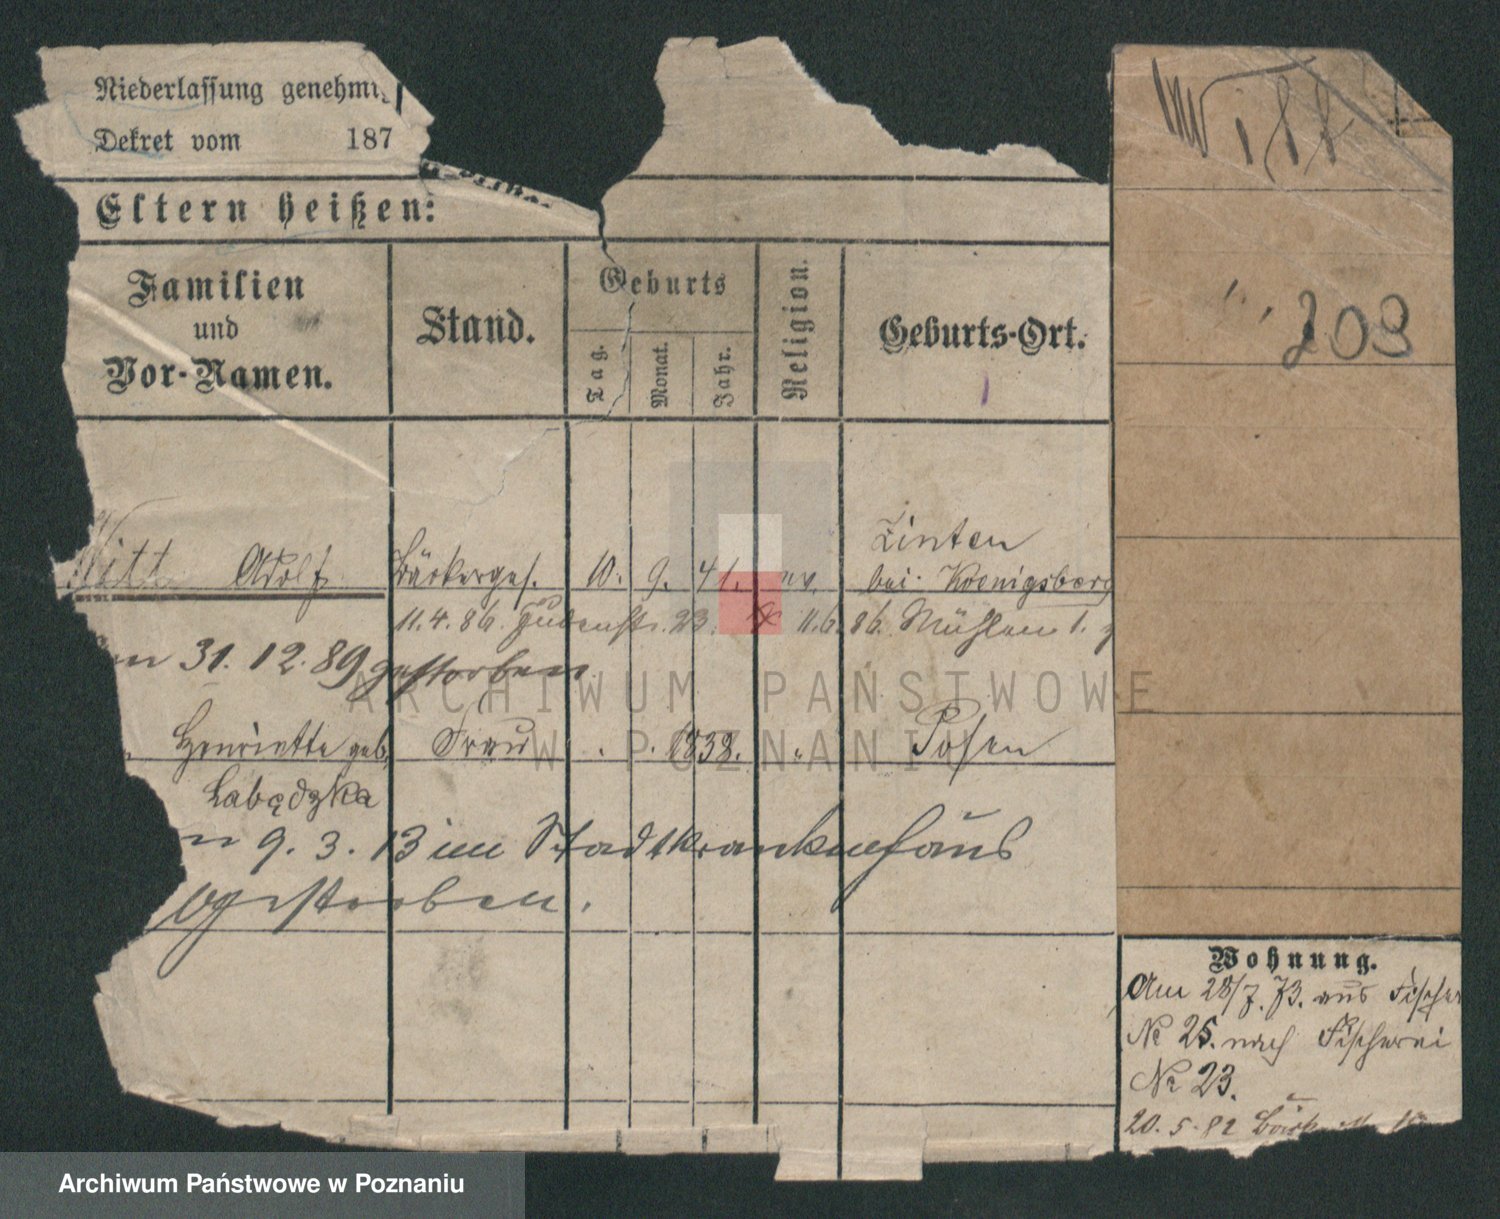 Niederlassung genehmi
Dekret vom 187
Eltern heißen:
Familien
und
Vor-Namen.
Stand.
Geburts
Tag.
Monat.
Jahr.
Religion.
Geburts-Ort.
203
Witt Adolf Bäckerges. 10. 9. 41. ev. Zinten
bei Koenigsberg
11.4.86. Judenstr. 23. 11.6.86. Mühlen
31. 12. 89 gestorben
Henriette geb. Frau 1838. " Posen
Łabędzka
9. 3. 13 im Stadtkrankenhaus
gestorben.
Wohnung.
Am 28/7. 73. aus Fischer
No 25. nach Fischerei
No 23.
20. 5. 82
ARCHIWUM PAŃSTWOWE
W POZNANIU
Archiwum Państwowe w Poznaniu